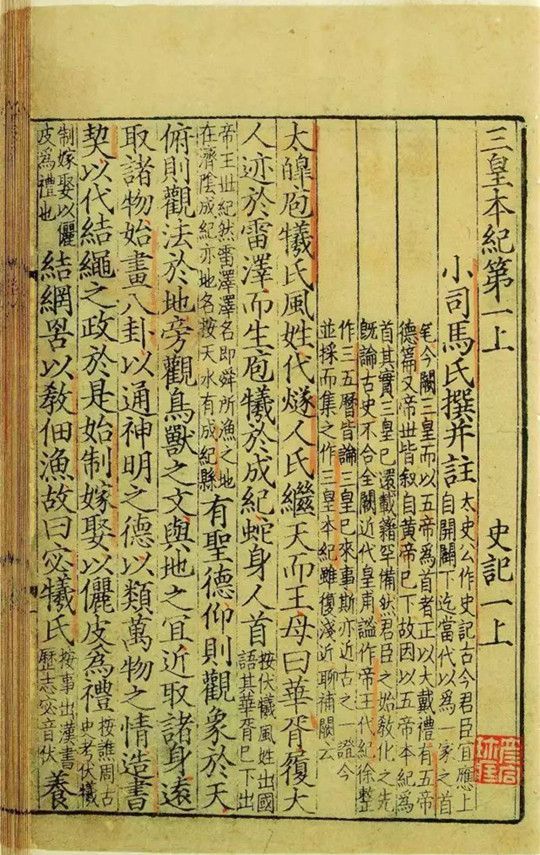 三皇本紀第一上　史記一上
小司馬氏撰并註 太史公作史記古今君臣宜應上
自開闢下迄當代以為一家之首
今闕三皇而以五帝為首者正以大戴禮有五帝
德篇又帝世皆叙自黃帝已下故因以五帝本紀為
首其實三皇已還載籍罕備然君臣之始敎化之先
旣論古史不合全闕近代皇甫謐作帝王代紀徐整
作三五曆皆論三皇已來事斯亦近古之一證今
並採而集之作三皇本紀雖復淺近聊補闕云
太皥庖犧氏風姓代燧人氏繼天而王母曰華胥履大
人迹於雷澤而生庖犧於成紀蛇身人首 按伏犧風姓出國
語其華胥已下出
帝王世紀然雷澤澤名即舜所漁之地
在濟陰成紀亦地名按天水有成紀縣 有聖德仰則觀象於天
俯則觀法於地旁觀鳥獸之文與地之宜近取諸身遠
取諸物始畫八卦以通神明之德以類萬物之情造書
契以代結繩之政於是始制嫁娶以儷皮為禮 按譙周古
史考伏犧
制嫁娶以儷
皮為禮也 結網罟以敎佃漁故曰宓犧氏 按事出漢書
歷志宓音伏 養